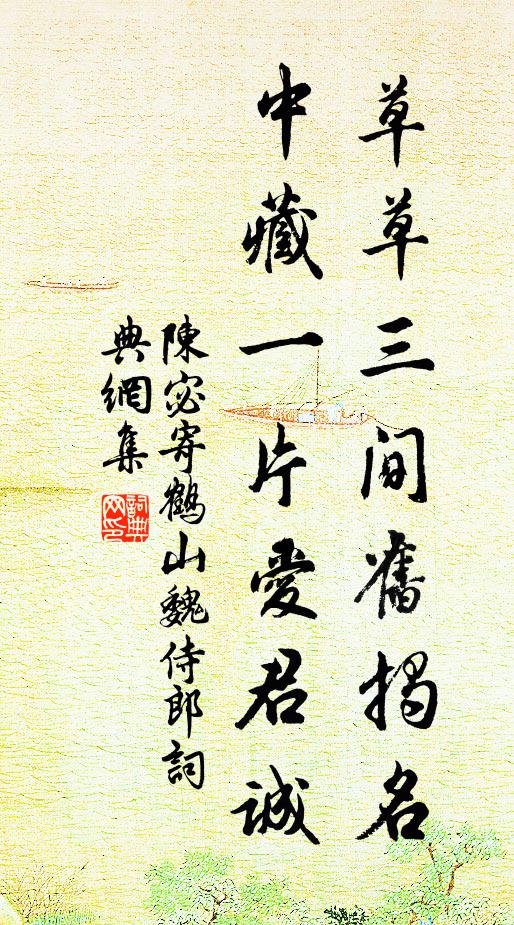 草草三间舊揭名
中藏一片愛君誠
陳宓寄鶴山魏侍郎詞
典網集
詞典
网印